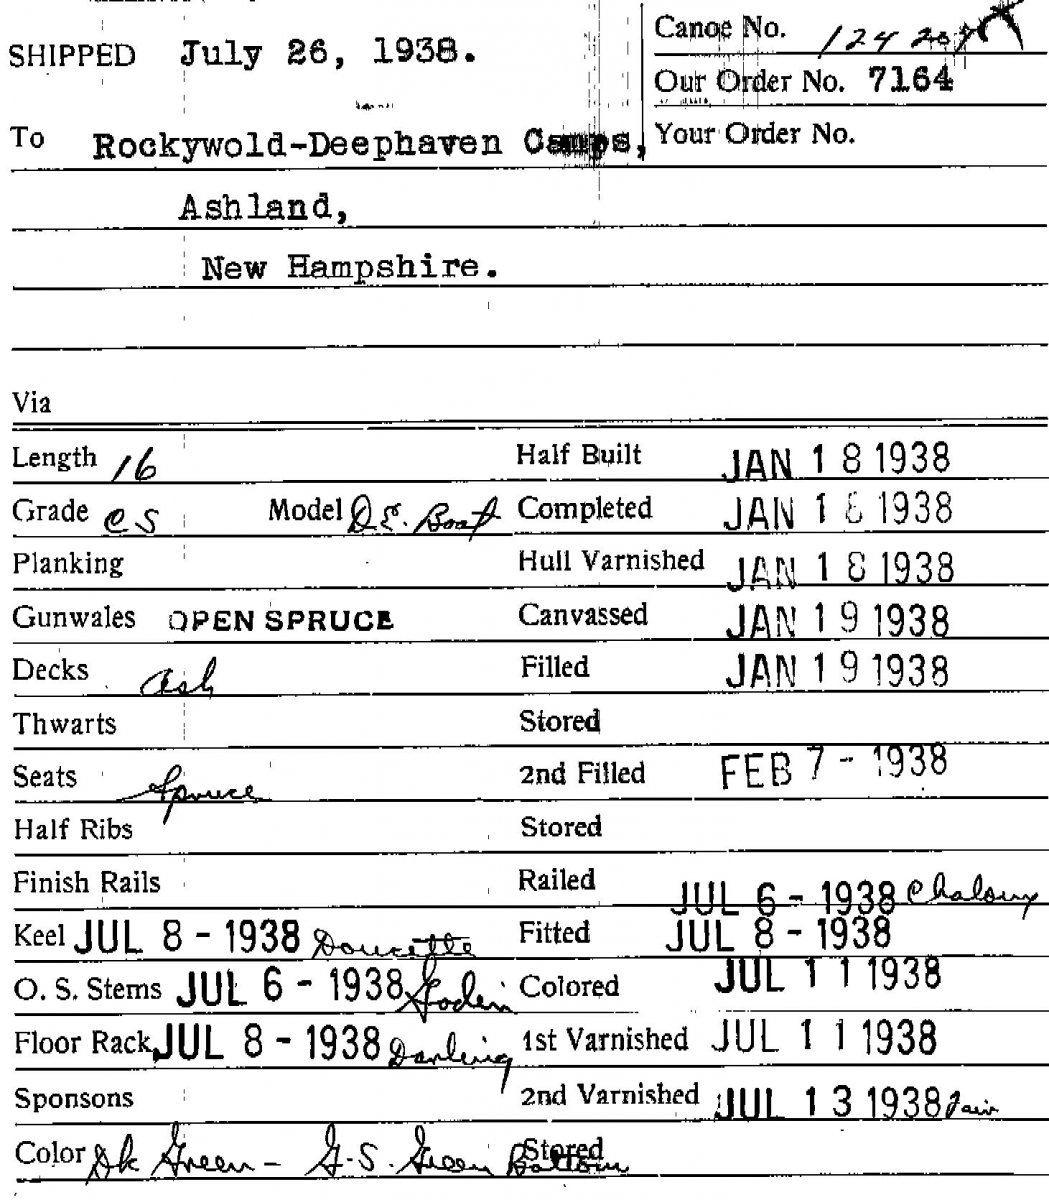 SHIPPED July 26, 1938.
Canoe No.
Our Order No. 7164
To Rockywold-Deephaven Camps, Your Order No.
Ashland,
New Hampshire.
Via
Length 16 Half Built JAN 18 1938
Grade CS Model D.E. Boat Completed JAN 18 1938
Planking Hull Varnished JAN 18 1938
Gunwales OPEN SPRUCE Canvassed JAN 19 1938
Decks Ash Filled JAN 19 1938
Thwarts Stored
Seats Spruce 2nd Filled FEB 7 - 1938
Half Ribs Stored
Finish Rails Railed JUL 6 - 1938
Keel JUL 8 - 1938 Doucette Fitted JUL 8 - 1938
O. S. Stems JUL 6 - 1938 Godin Colored JUL 11 1938
Floor Rack JUL 8 - 1938 Darling 1st Varnished JUL 11 1938
Sponsons 2nd Varnished JUL 13 1938
Color Dk Green - G.S. Green Bottom Stored